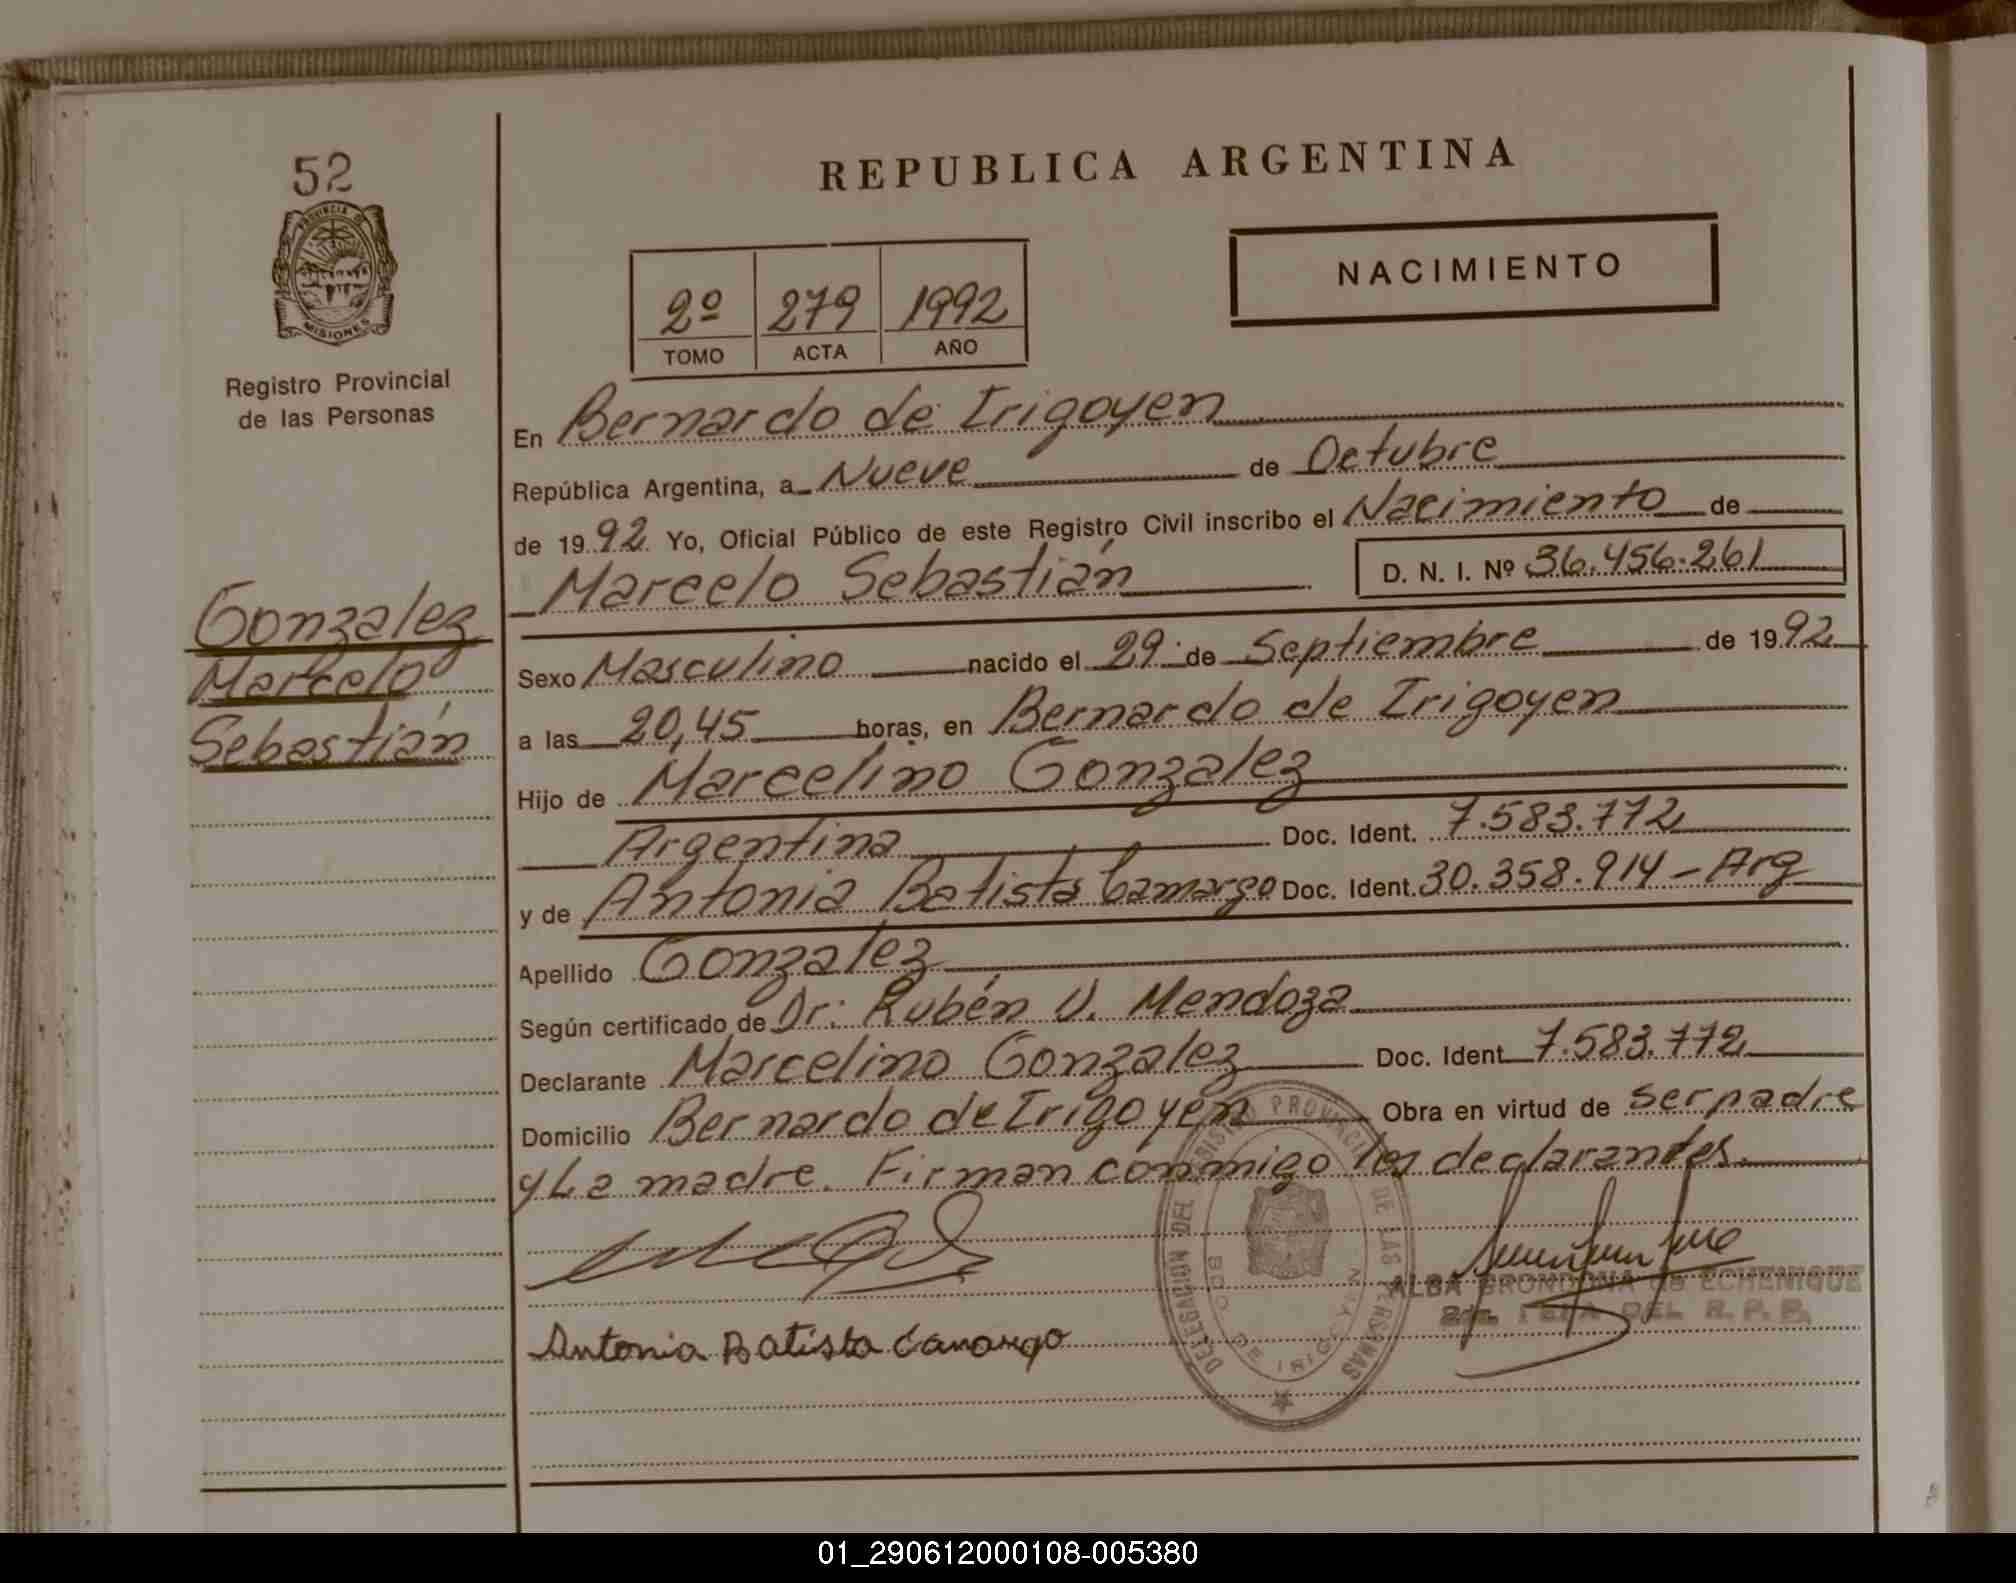 52
PROVINCIA DE
MISIONES
Registro Provincial
de las Personas
Gonzalez
Marcelo
Sebastián
REPUBLICA ARGENTINA
NACIMIENTO
2º 279 1992
TOMO ACTA AÑO
En Bernardo de Irigoyen
República Argentina, a Nueve de Octubre
de 1992 Yo, Oficial Público de este Registro Civil inscribo el Nacimiento de
Marcelo Sebastián D. N. I. Nº 36.456.261
Sexo Masculino nacido el 29 de Septiembre de 1992
a las 20,45 horas, en Bernardo de Irigoyen
Hijo de Marcelino Gonzalez
Argentina Doc. Ident. 7.583.772
y de Antonia Batista Camargo Doc. Ident. 30.358.914 - Arg
Apellido Gonzalez
Según certificado de Dr: Rubén V. Mendoza
Declarante Marcelino Gonzalez Doc. Ident 7.583.772
Domicilio Bernardo de Irigoyen Obra en virtud de ser padre
y La madre. Firman conmigo los declarantes.
DELEGACION DEL REGISTRO PROVINCIAL DE LAS PERSONAS
BDO DE IRIGOYEN
ALBA GRONDONA de ECHENIQUE
DEL R. P. P.
Antonia Batista Camargo
01_290612000108-005380